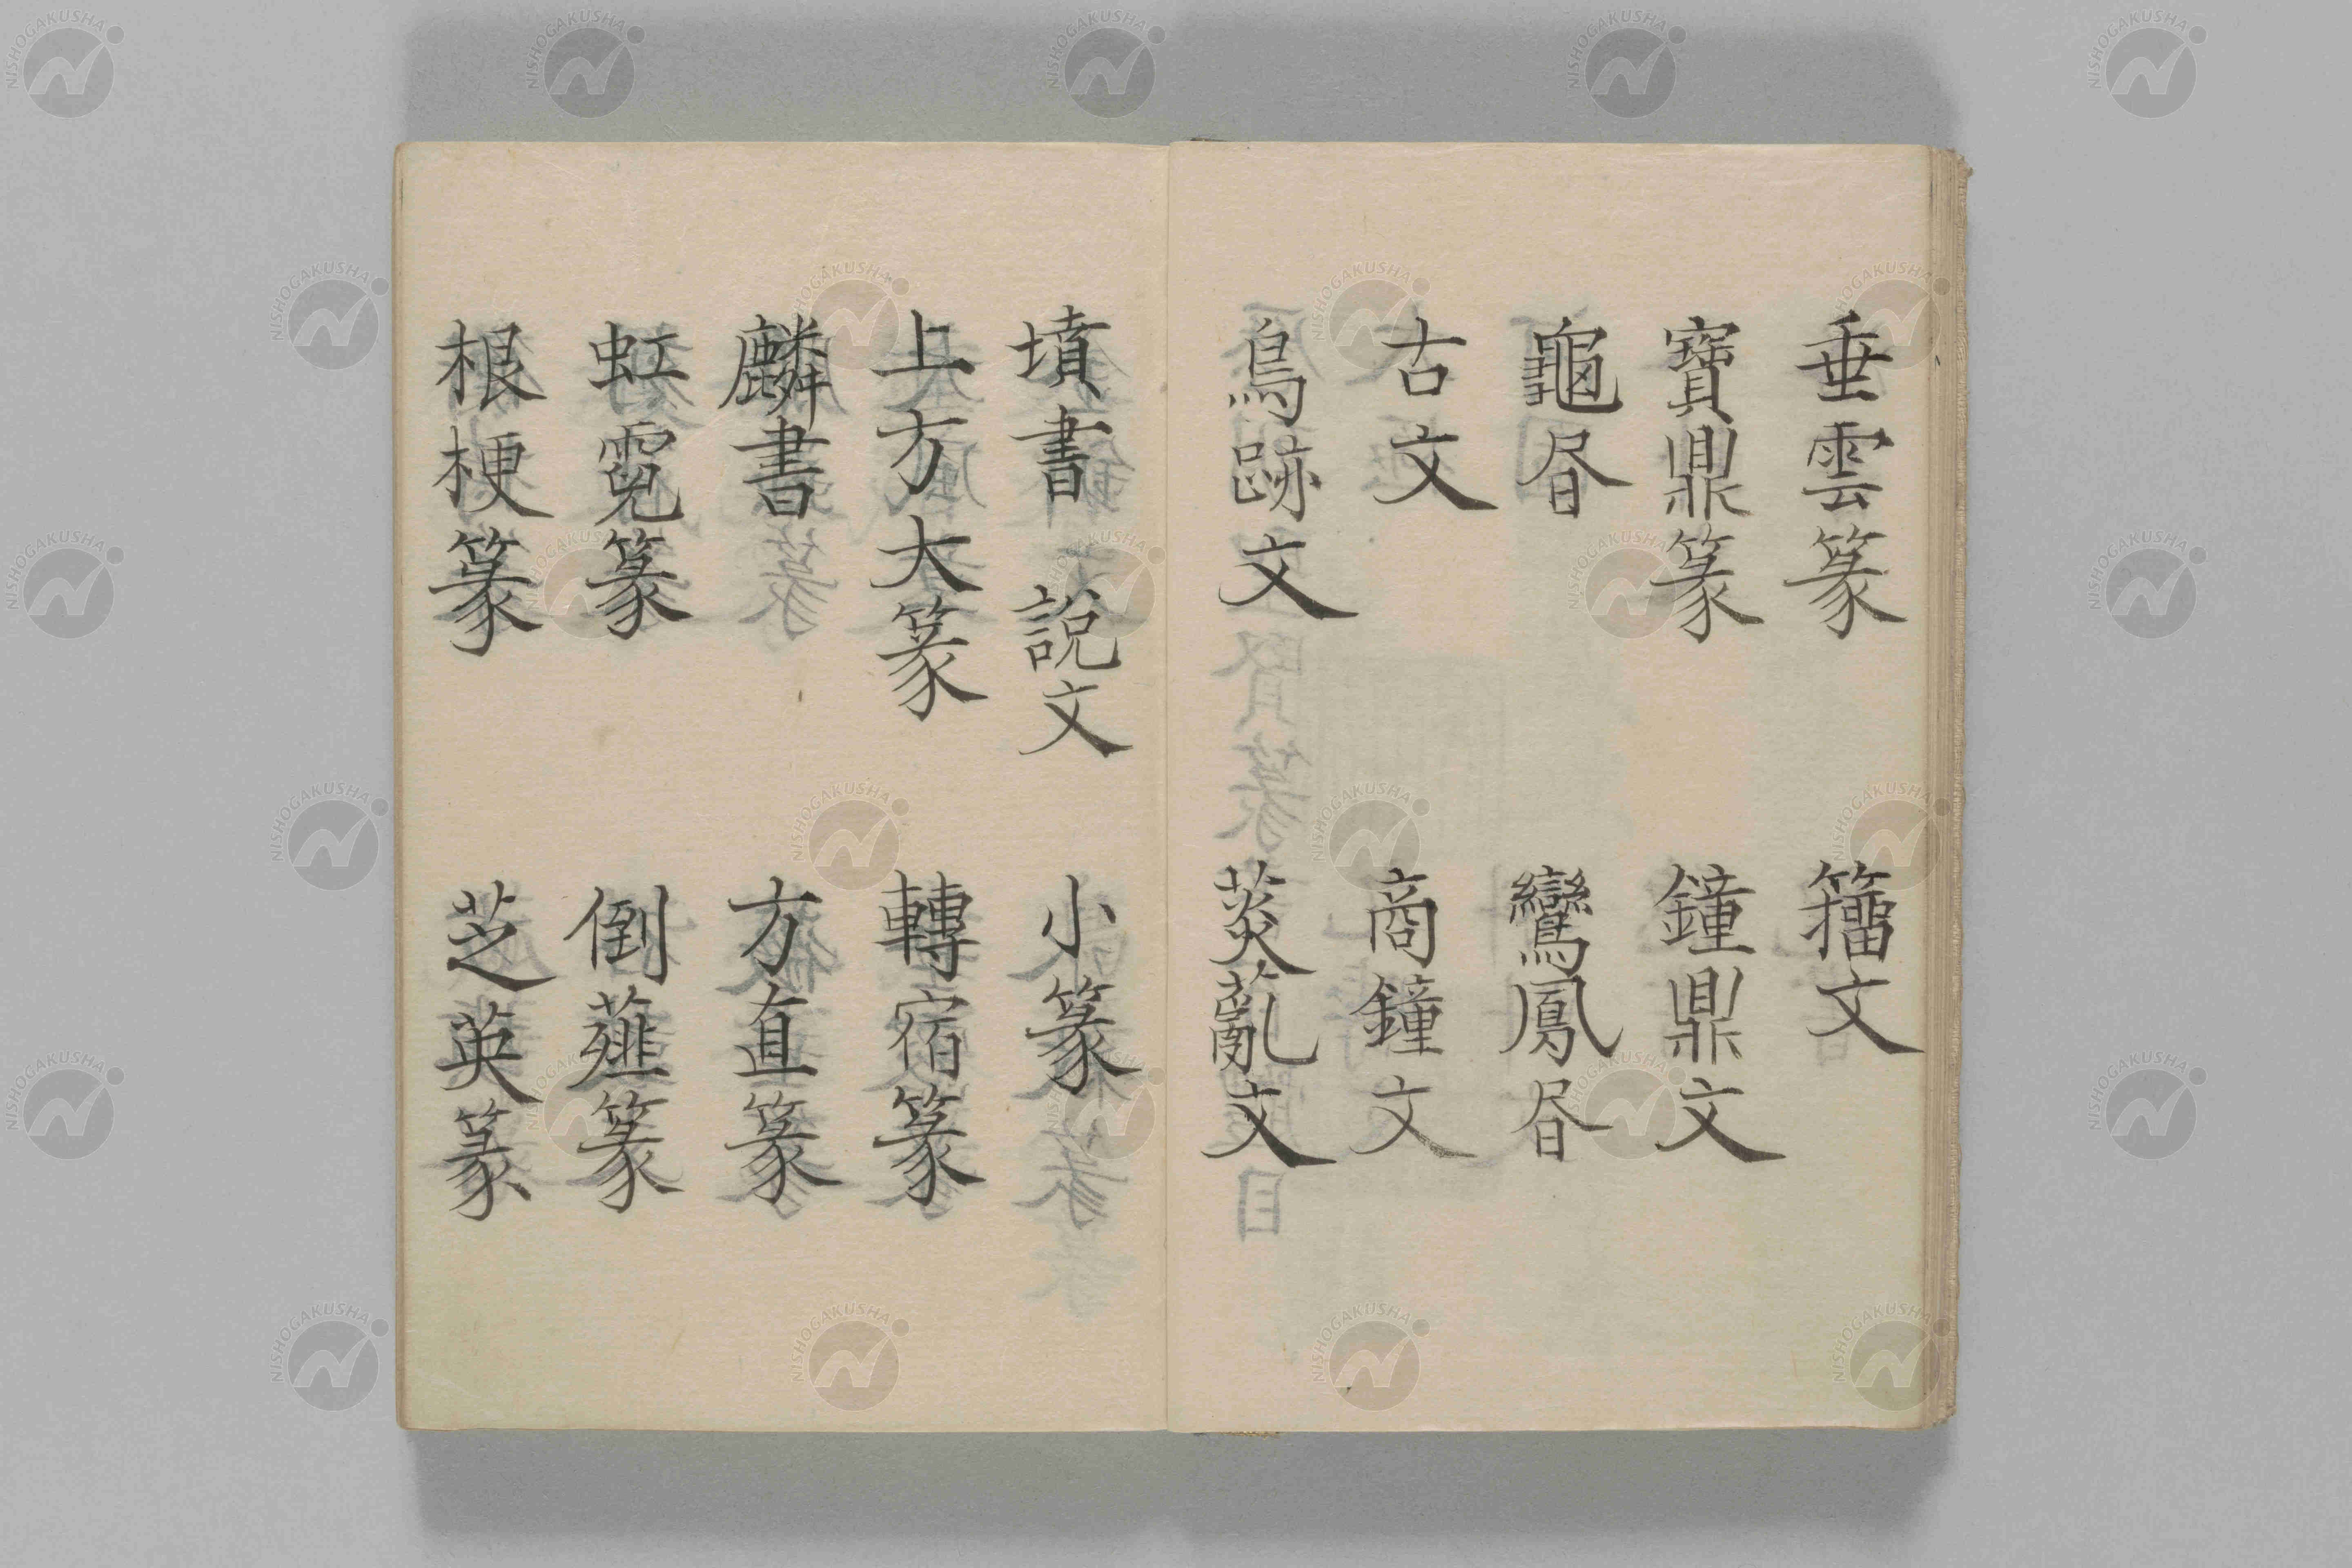 垂雲篆　籒文
寶鼎篆　鐘鼎文
龜昼　鸞鳳昼
古文　商鐘文
鳥跡文　薂薍文
墳書　說文　小篆
上方大篆　轉宿篆
麟書　方直篆
虹霓篆　倒薤篆
根梗篆　芝英篆
NISHOGAKUSHA